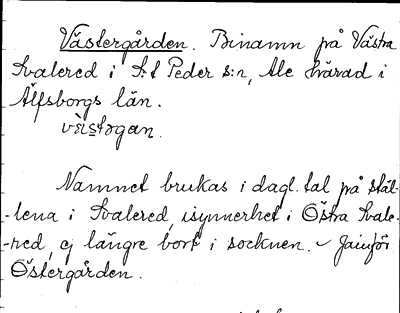 Västergården. Binamn på Västra
Svalered i S:t Peder s:n, Ale härad i
Älfsborgs län.
Namnet brukas i dagl. tal på stäl-
-lena i Svalered, isynnerhet i Östra Svale-
-red, ej längre bort i socknen. Jämför
Östergården.